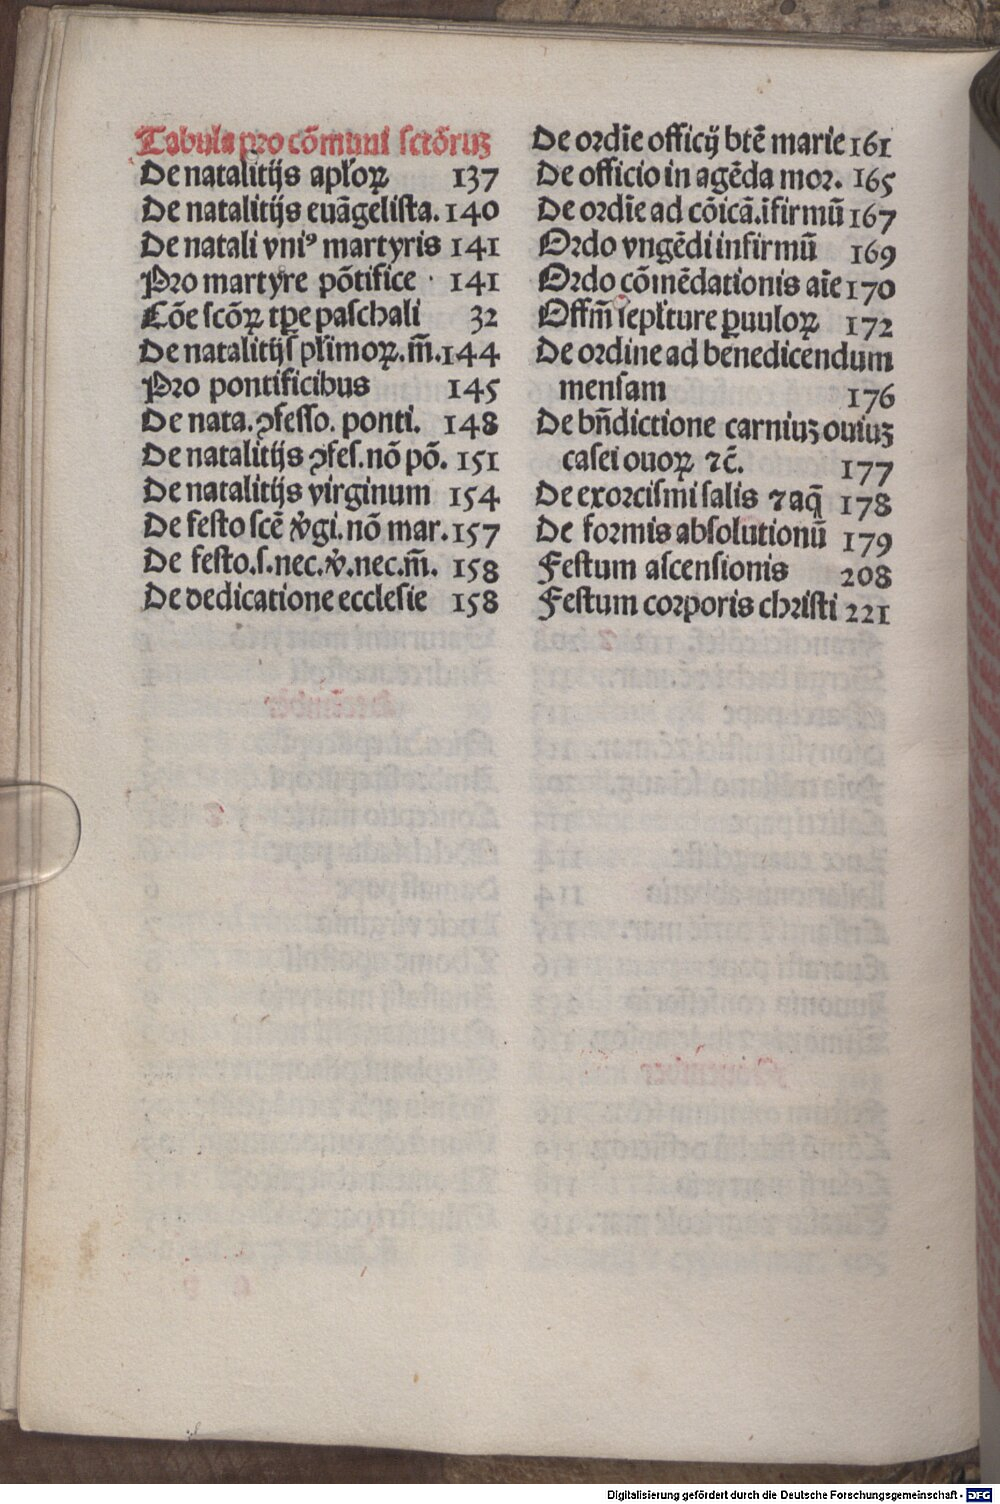 Tabula pro cõmuni sctõruꝫ
De natalitijs apłoꝝ 137
De natalitijs euãgelista. 140
De natali vniꝰ martyris 141
Pro martyre põtifice 141
Cõe scõꝝ tꝑe paschali 32
De natalitijs płimoꝝ. m̃. 144
Pro pontificibus 145
De nata. ꝯfesso. ponti. 148
De natalitijs ꝯfes. nõ põ. 151
De natalitijs virginum 154
De festo scẽ v̓gi. nõ mar. 157
De festo. s. nec. v̓. nec. m̃. 158
De dedicatione ecclesie 158
De ordĩe officij btẽ marie 161
De officio in agẽda mor. 165
De ordĩe ad cõicã. ĩfirmũ 167
Ordo vngẽdi infirmũ 169
Ordo cõmẽdationis aĩe 170
Offm̃ sepłture ꝑuuloꝝ 172
De ordine ad benedicendum
mensam 176
De bñdictione carniuꝫ ouiuꝫ
casei ouoꝝ ⁊c̃. 177
De exorcismi salis ⁊ aq̃ 178
De formis absolutionũ 179
Festum ascensionis 208
Festum corporis christi 221
Digitalisierung gefördert durch die Deutsche Forschungsgemeinschaft - DFG